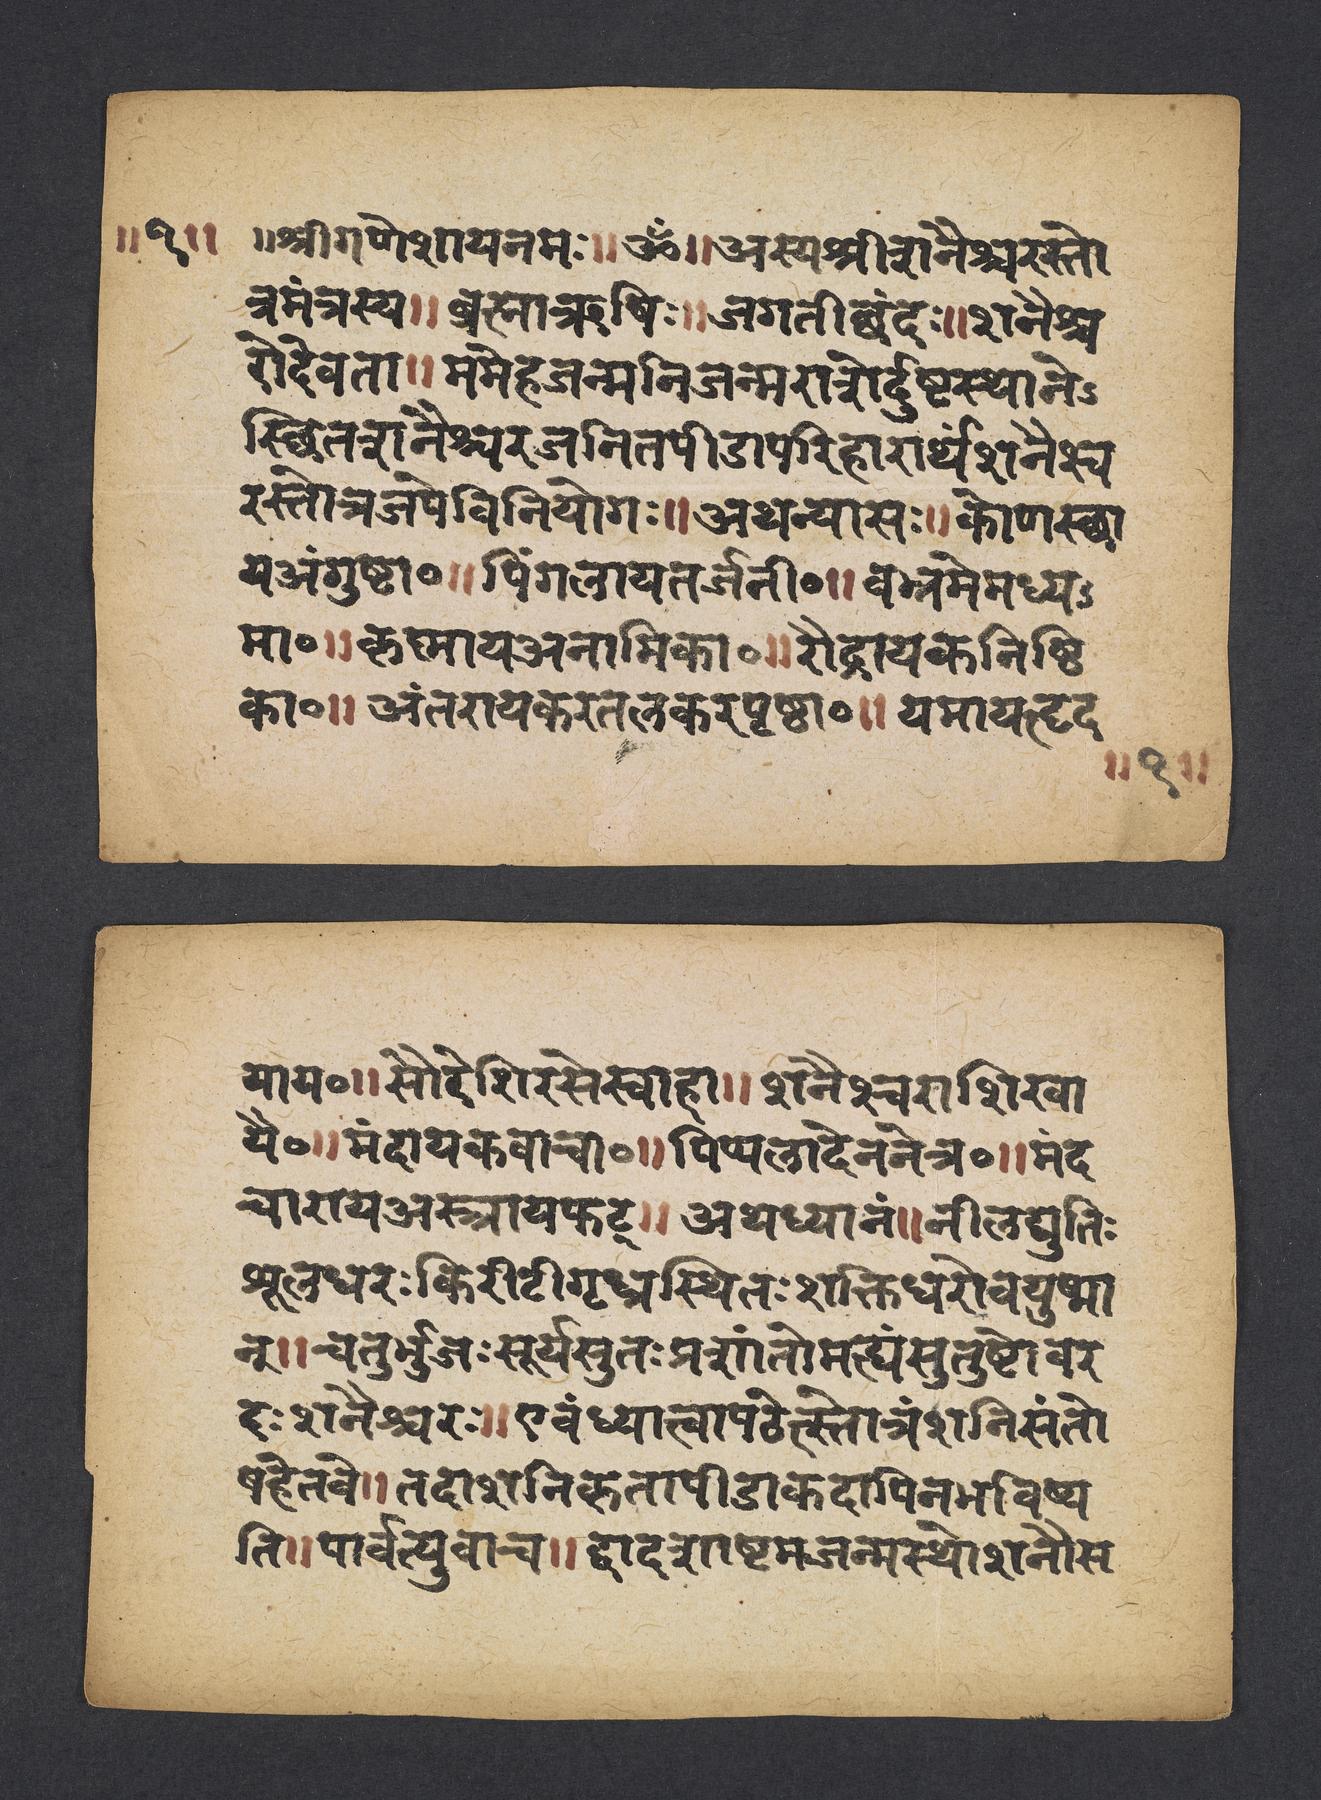 ॥१॥ ॥श्रीगणेशायनमः॥ॐ॥अस्यश्रीशनैश्चरस्तो
त्रमंत्रस्य॥ब्रह्माऋषिः॥जगतीछंदः॥शनैश्च
रोदेवता॥ममेहजन्मनिजन्मराशेर्दुष्टस्थानेऽ
स्छितशनैश्चरजनितपीडापरिहारार्थंशनैश्च
रस्तोत्रजपेविनियोगः॥अथन्यासः॥कोणस्छा
यअंगुष्टा०॥पिंगलायतर्जनी०॥बभ्रमेमध्यऽ
मा०॥कृष्मायअनामिका०॥रौद्रायकनिष्ठि
का०॥अंतरायकरतलकरपृष्ठा०॥यमायत्दृद
॥१॥
याय०॥सौरेशिरसेस्वाहा॥शनैश्चराशिखा
यै०॥मंदायकवाचा०॥पिप्पलादेननेत्र०॥मंद
चारायअस्त्रायफट्॥अथध्यानं॥नीलद्युतिः
शूलधरःकिरीटीगृध्रस्थितःशक्तिधरोवयुष्मा
न्॥चतुर्भुजःसूर्यसुतःप्रशांतोमह्यंसुतुष्टोवर
दःशनैश्चरः॥एवंध्यात्वापठेत्स्तोत्रंशनिसंतो
षहेतवे॥तदाशनिकृतापीडाकदापिनभविष्य
ति॥पार्वत्युवाच॥द्वादशाष्टमजन्मस्थोशनौस